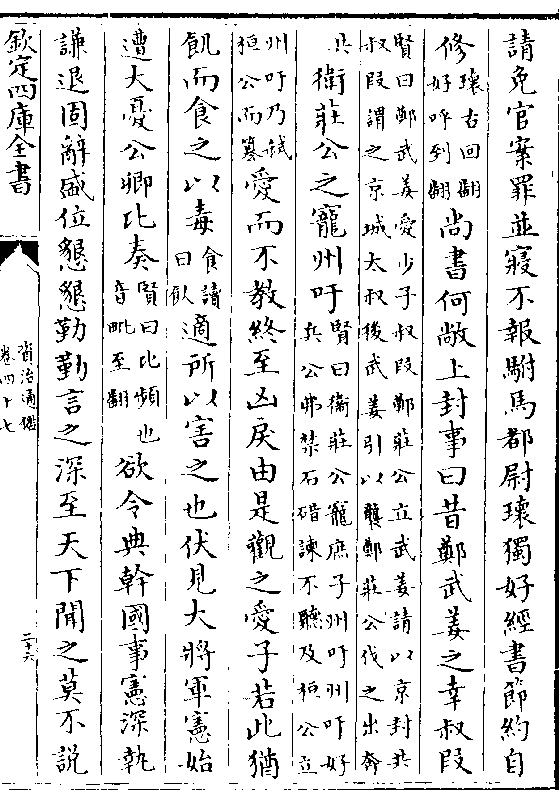 請免官案罪並寢不報駙馬都尉瓌獨好經書節約自
修瓌古回翻好呼到翻尚書何敞上封事曰昔鄭武姜之幸叔段
賢曰鄭武姜愛少子叔段鄭莊公立武姜請以京封共叔段謂之京城太叔後武姜引以襲鄭莊公伐之出奔
共衛莊公之寵州吁賢曰衛莊公寵庶子州吁州吁好兵公弗禁石碏諫不聽及桓公立
州吁乃弒桓公而簒愛而不教終至凶戾由是觀之愛子若此猶
飢而食之以毒食讀曰飤適所以害之也伏見大將軍憲始
遭大憂公卿比奏賢曰比頻也音毗至翻欲令典幹國事憲深執
謙退固辭盛位懇懇勤勤言之深至天下聞之莫不說
欽定四庫全書
資治通鑑
卷四十七
二十六